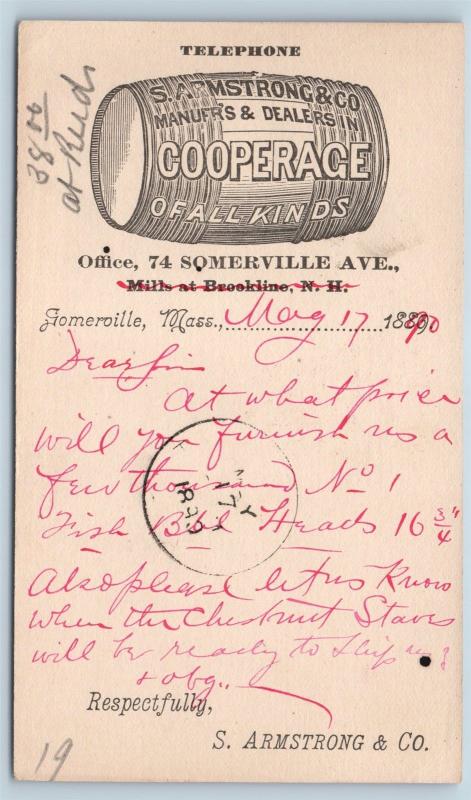 TELEPHONE
38 00
at Reeds
S. ARMSTRONG & CO
MANUFR'S & DEALERS IN
COOPERAGE
OF ALL KINDS
Office, 74 SOMERVILLE AVE.,
Mills at Brookline, N. H.
Somerville, Mass., May 17 1889. 90
Dear Sir
At what price
will you furnish us a
few thousand No 1
Fish Bbl Heads 16 3/4"
Also please let us know
when the Chestnut Staves
will be ready to ship us?
& obg..
MAY
17
1890
Respectfully,
S. ARMSTRONG & CO.
19